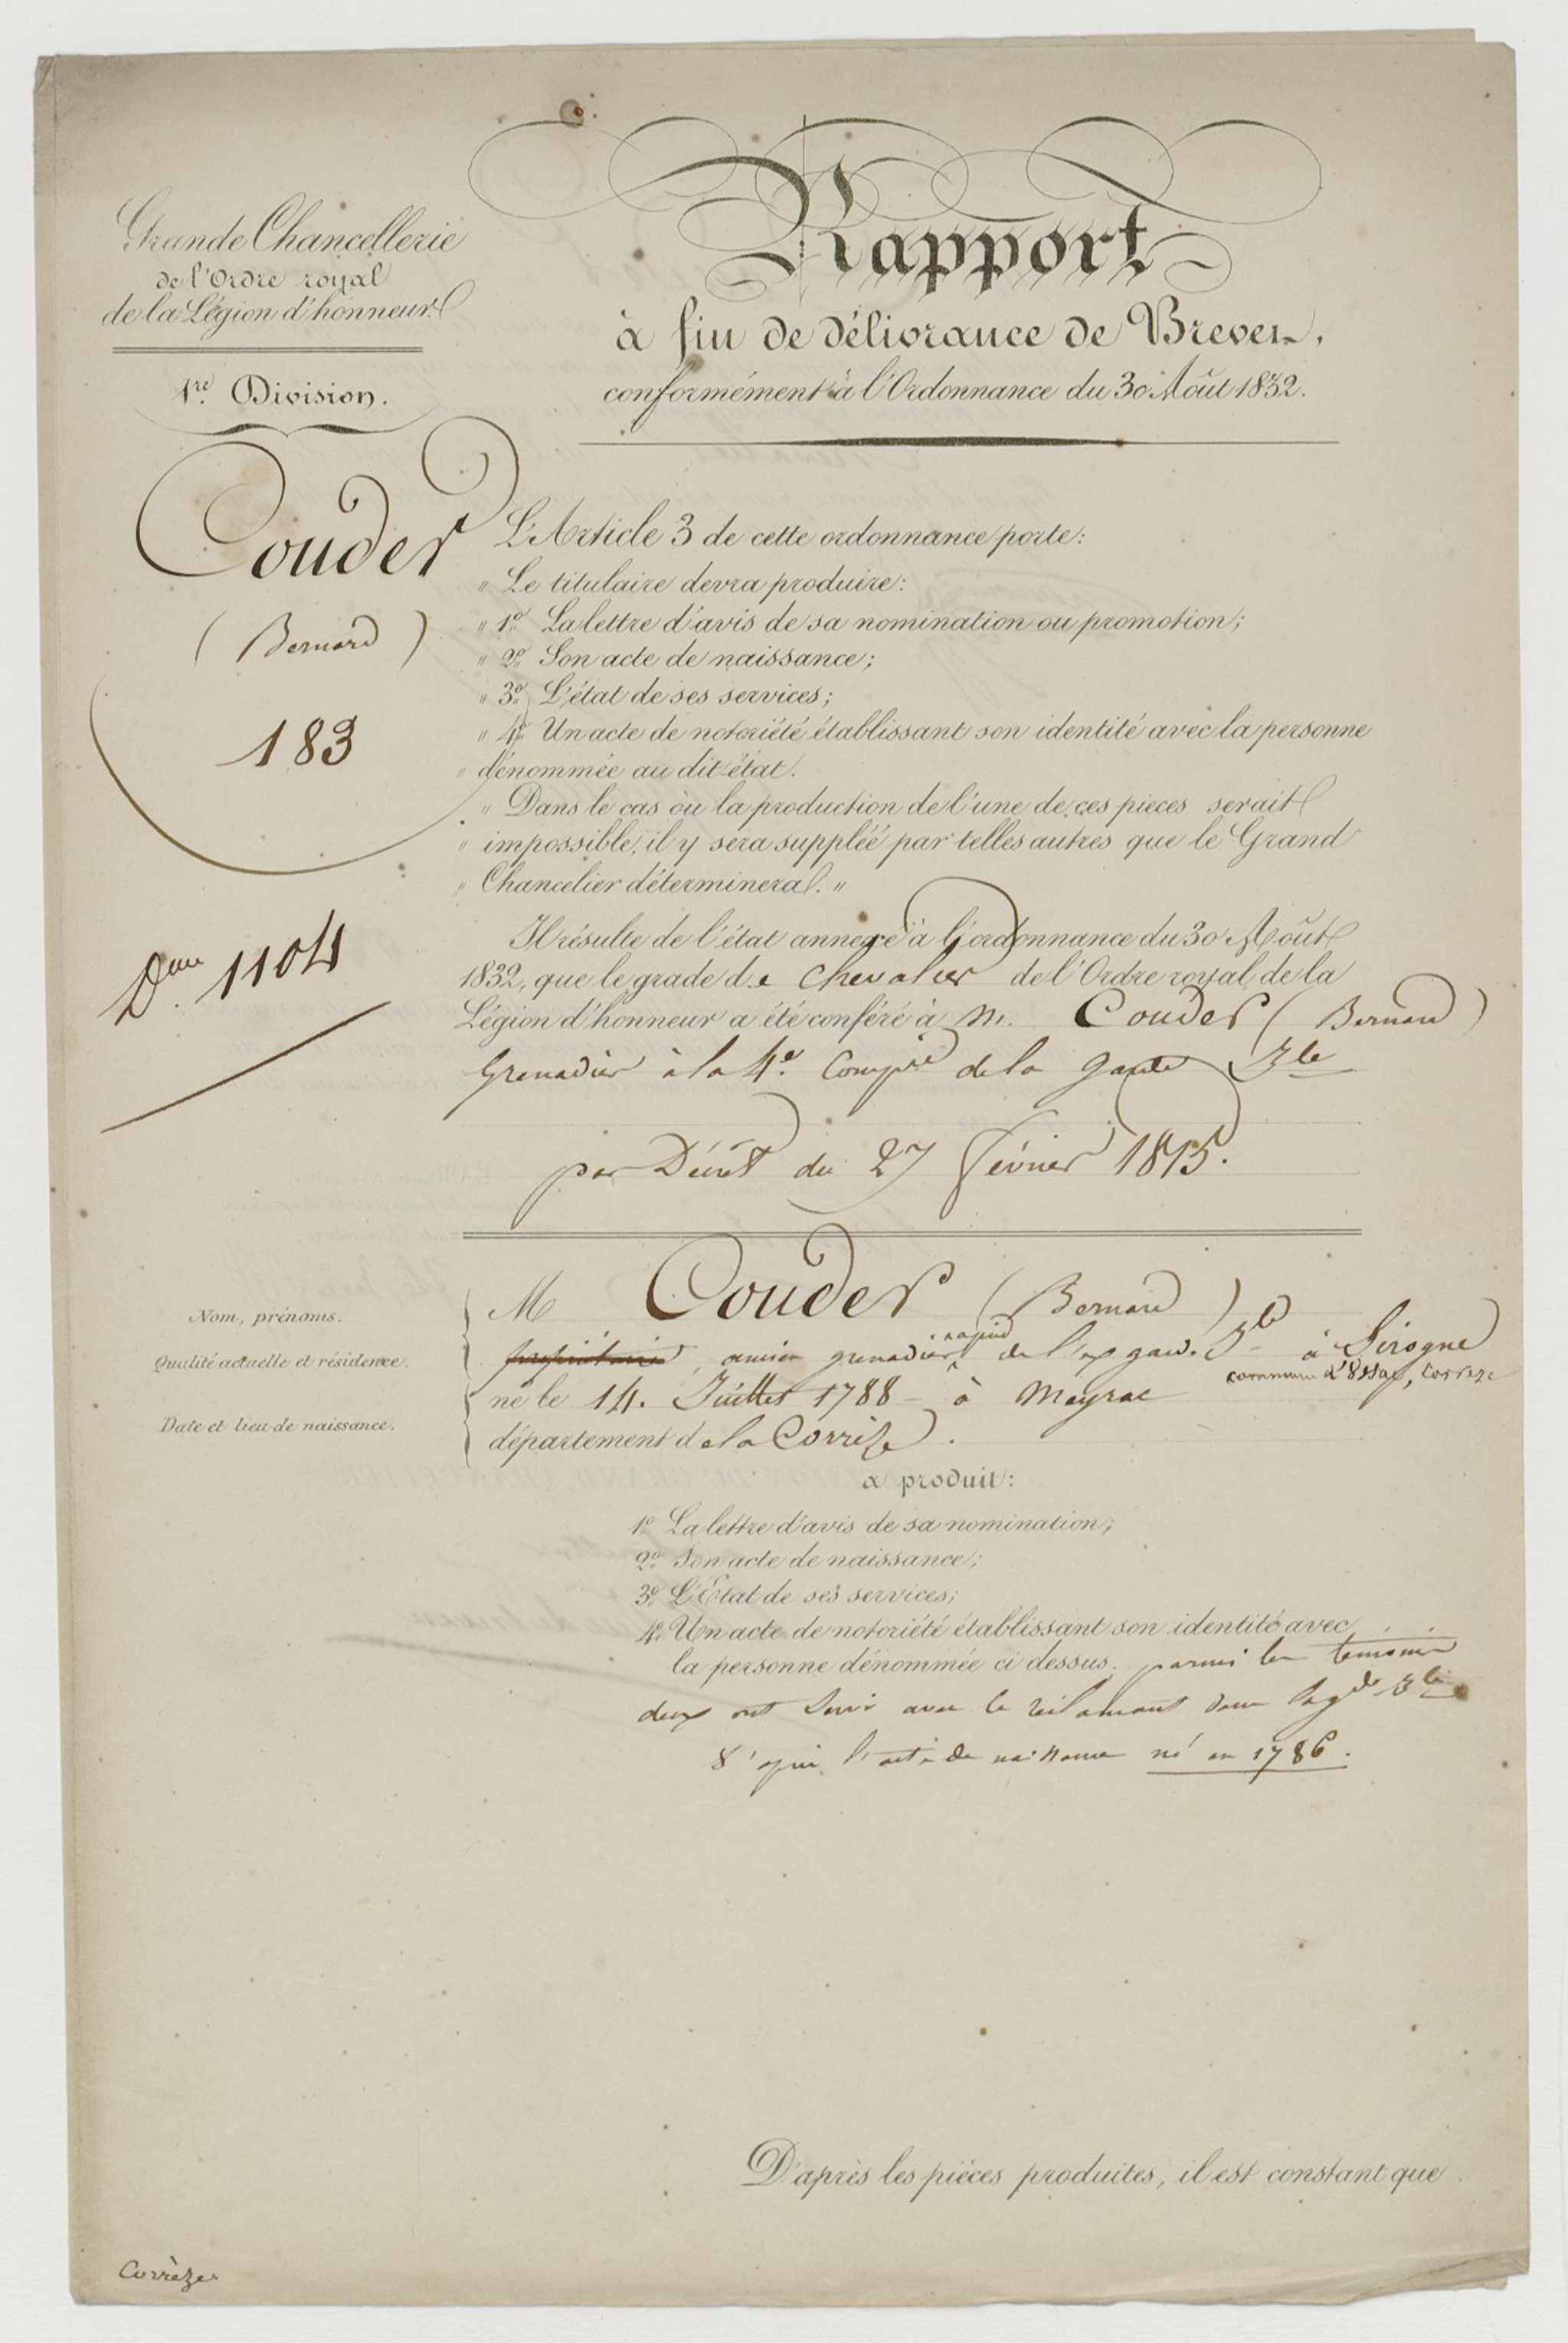 Grande Chancellerie
de l'Ordre royal
de la Légion d'honneur
1re Division.
Rapport
à fin de délivrance de Brevet,
conformément à l'Ordonnance du 30 Août 1832.
Couder
(Bernard)
183
1104
L'Article 3 de cette ordonnance porte:
" Le titulaire devra produire:
" 1º La lettre d'avis de sa nomination ou promotion;
" 2º Son acte de naissance;
" 3º L'état de ses services;
" 4º Un acte de notoriété établissant son identité avec la personne
" dénommée au dit état.
" Dans le cas où la production de l'une de ces pièces serait
" impossible, il y sera suppléé par telles autres que le Grand
" Chancelier déterminera. "
Il résulte de l'état annexé à l'ordonnance du 30 Août
1832, que le grade de Chevalier de l'Ordre royal de la
Légion d'honneur a été conféré à M. Couder (Bernard)
Grenadier à la 4e Compie de la garde Ile
par Décret du 27 février 1815.
Nom, prénoms.
Qualité actuelle et résidence.
Date et lieu de naissance.
M Couder (Bernard)
propriétaire, ancien grenadier de l'ex garde Ile à Sirogne
commune d'Ussac, Corrèze
né le 14 Juillet 1788 à Meyrac
département de la Corrèze.
a produit:
1º La lettre d'avis de sa nomination;
2º Son acte de naissance;
3º L'Etat de ses services;
4º Un acte de notoriété établissant son identité avec
la personne dénommée ci dessus. parmi les témoins
deux ont servi avec le réclamant dans la gde Ile
d'après l'acte de naissance né en 1786.
D'après les pièces produites, il est constant que
Corrèze